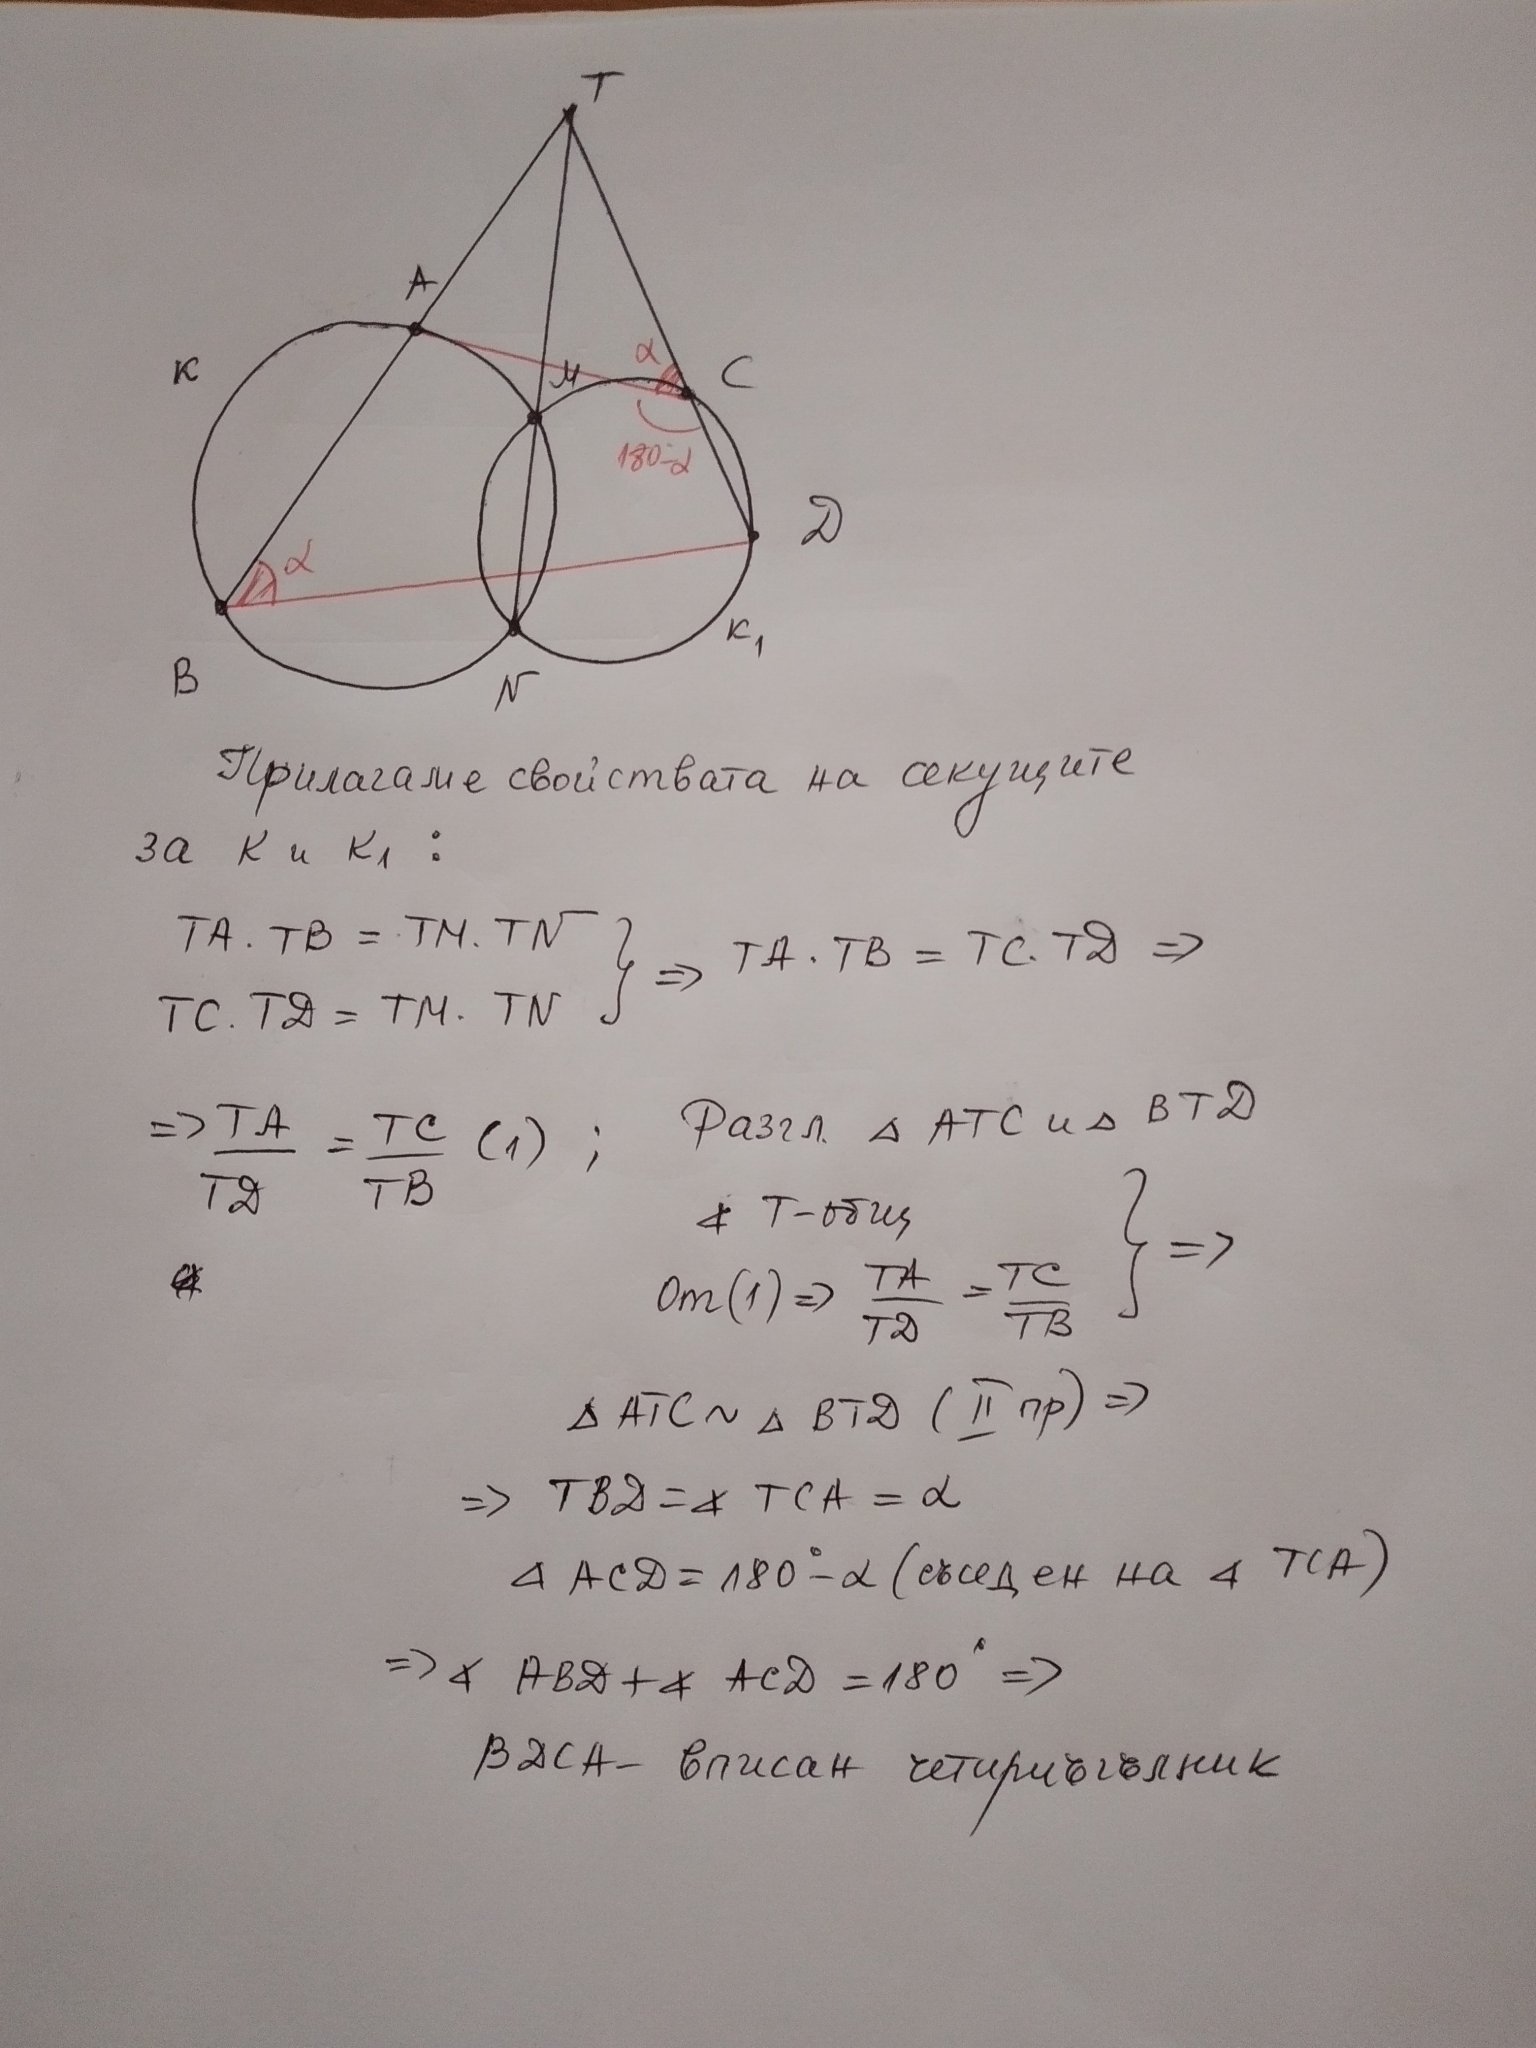 T
A
K
M
α
C
180-α
Д
α
K₁
B
N
Прилагаме свойствата на секущите
за K и K₁ :
TA . TB = TM . TN } => TA . TB = TC . TД =>
TC . TД = TM . TN
=> TA/TД = TC/TB (1) ; Разгл. △ ATC и △ BTД
∢ T - общ } =>
От (1) => TA/TД = TC/TB
△ ATC ~ △ BTД ( II пр) =>
=> TBД = ∢ TCA = α
∢ ACД = 180° - α (съседен на ∢ TCA)
=> ∢ ABД + ∢ ACД = 180° =>
BДCA - вписан четириъгълник